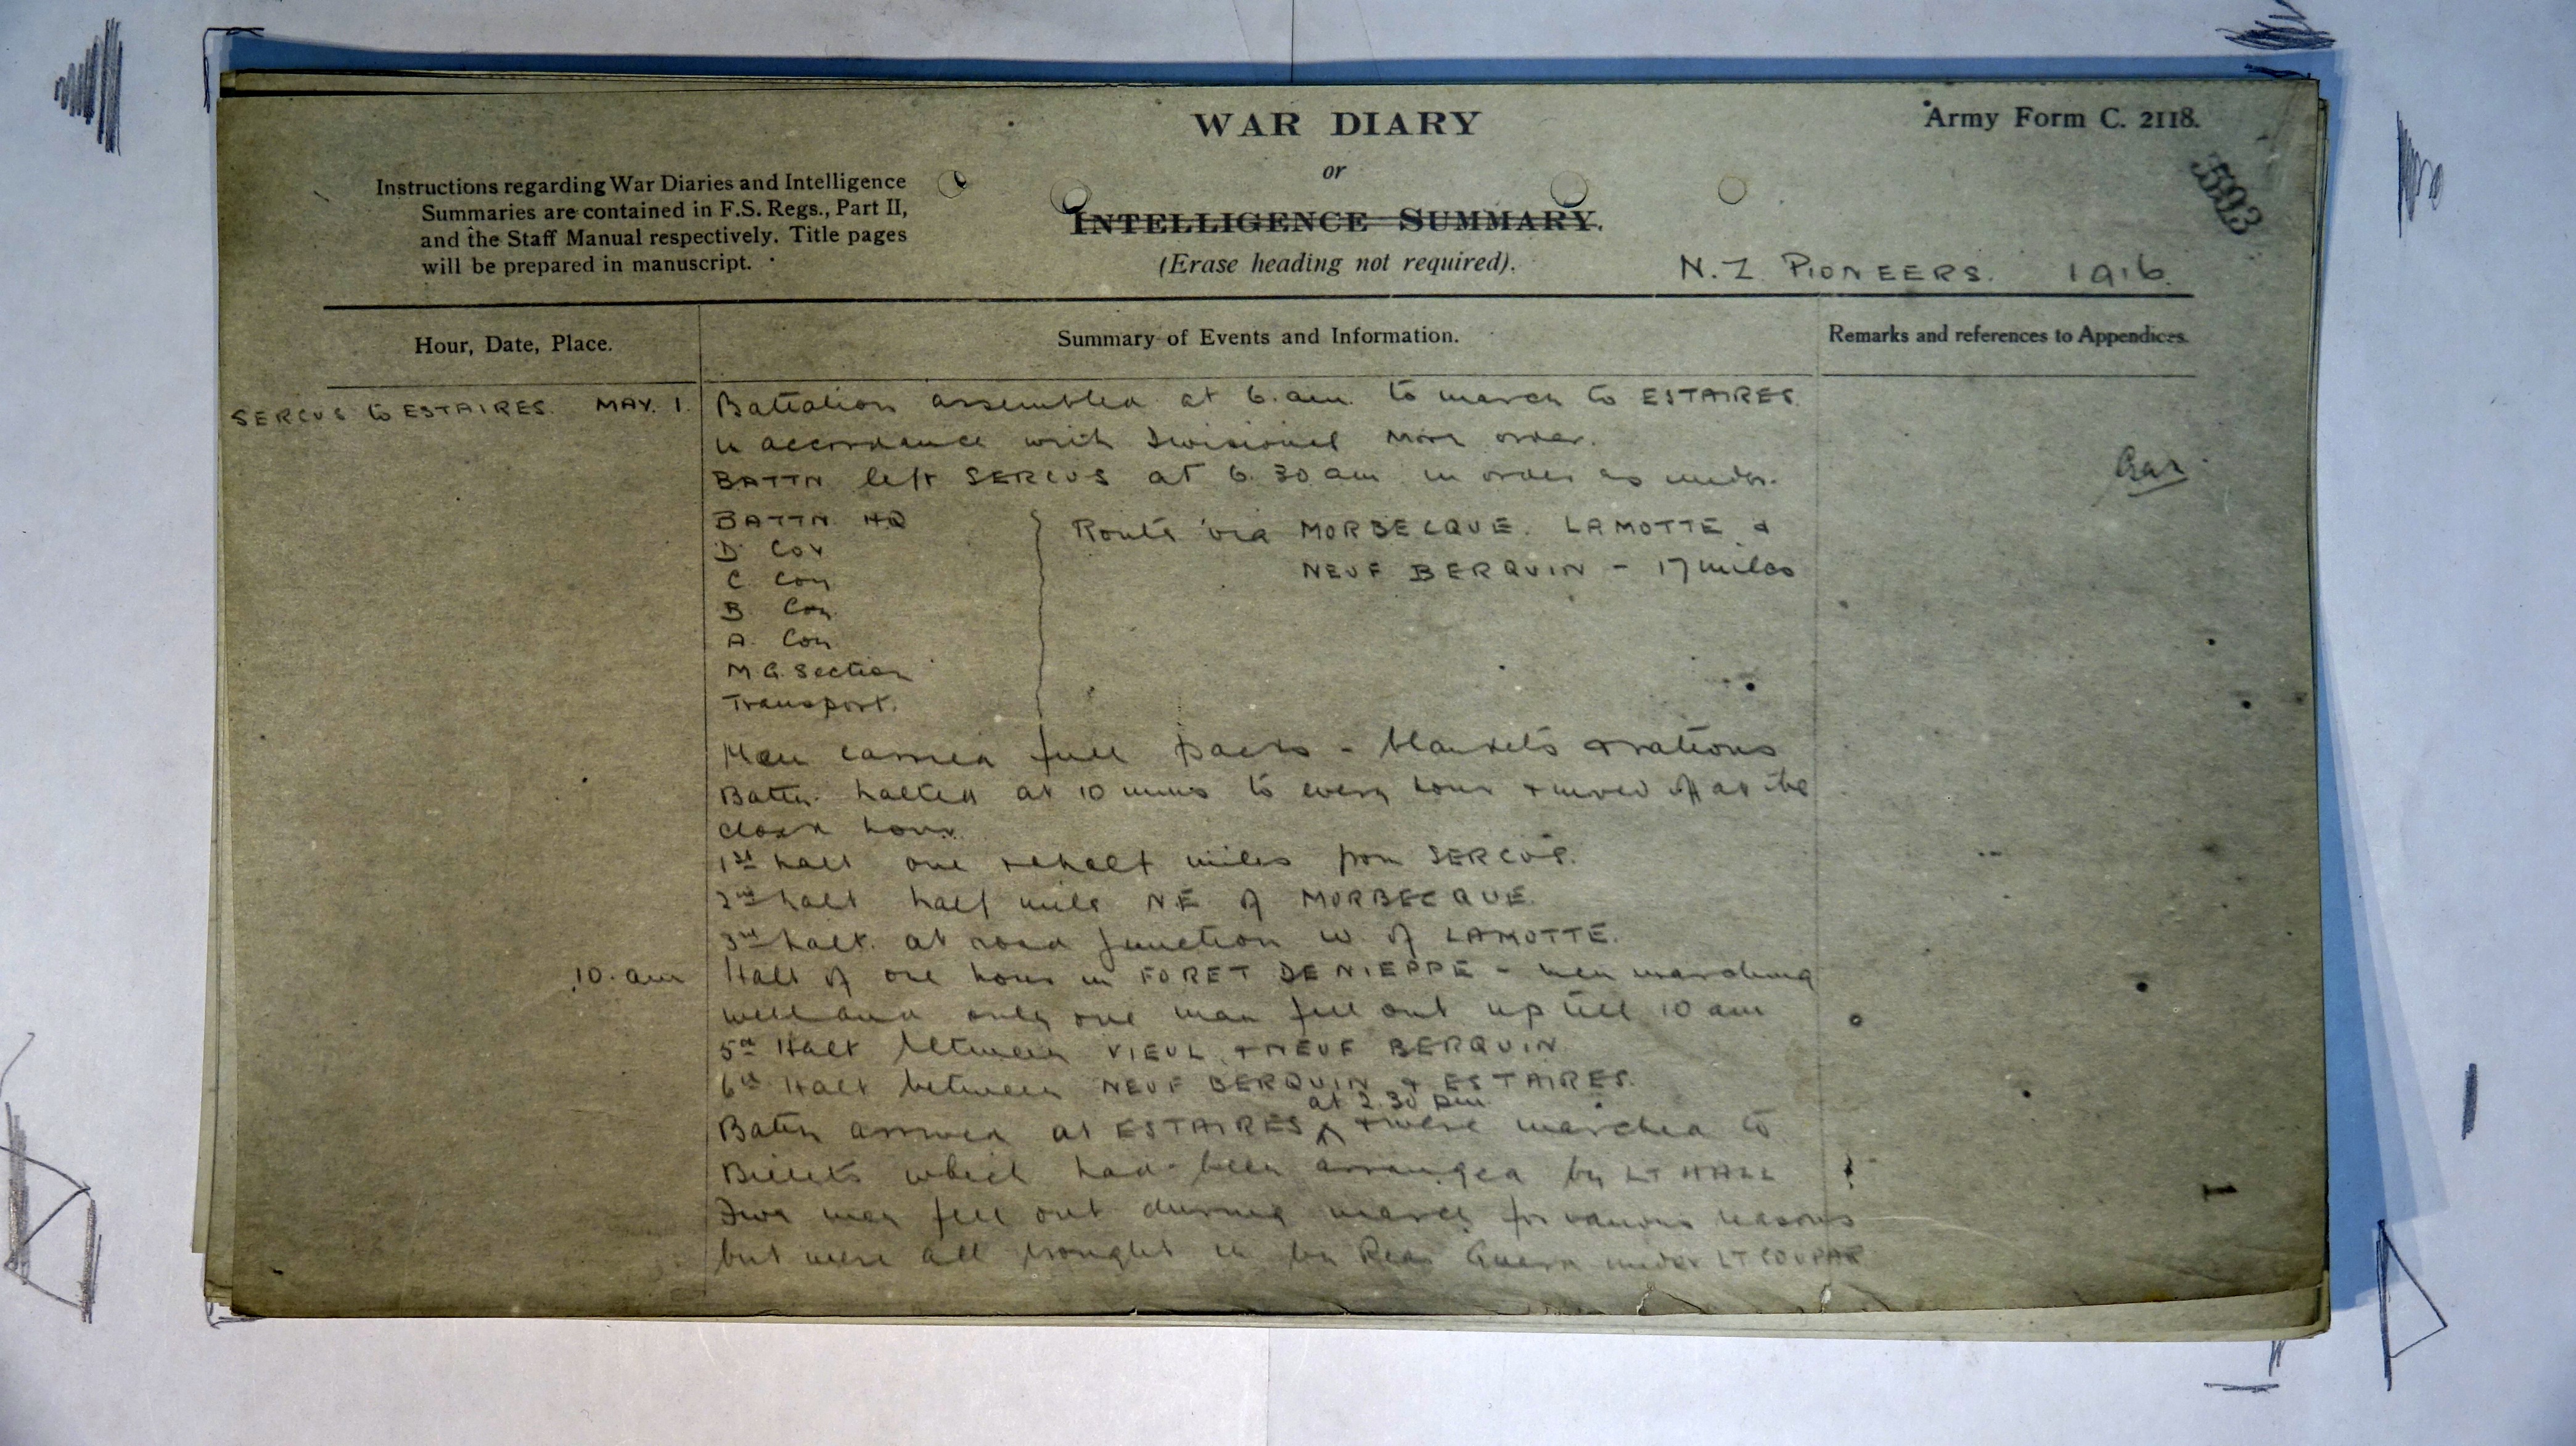 WAR DIARY
or
INTELLIGENCE SUMMARY.
(Erase heading not required).
Army Form C. 2118.
3593
Instructions regarding War Diaries and Intelligence
Summaries are contained in F.S. Regs., Part II,
and the Staff Manual respectively. Title pages
will be prepared in manuscript.
N.Z PIONEERS. 1916.
Hour, Date, Place.
Summary of Events and Information.
Remarks and references to Appendices.
SERCUS to ESTAIRES. MAY. 1.
Battalion assembled at 6. am. to march to ESTAIRES.
in accordance with Divisional order.
BATTN left SERCUS at 6.30 am in order as under.
BATTN. HQ
D Coy
C. Coy
B. Coy.
A. Coy
M G. Section
Transport.
Route via MORBECQUE. LAMOTTE &
NEUF BERQUIN - 17 miles
Men carried full packs - blankets & rations
Battn. halted at 10 mins to every hour & moved off at the
clock hour.
1st halt one & half miles from SERCUS.
2nd halt half mile NE of MORBECQUE.
3rd halt. at road junction W. of LAMOTTE.
10. am
Halt of one hour in FORET DE NIEPPE - men marching
well and only one man fell out up till 10 am
5th Halt between VIEUL & NEUF BERQUIN
6th Halt between NEUF BERQUIN & ESTAIRES.
Battn arrived at ESTAIRES at 2.30 pm & were marched to
Billets which had been arranged by LT HALL
men fell out during march for various reasons
but were all brought in by Rear Guard under LT COUPAR